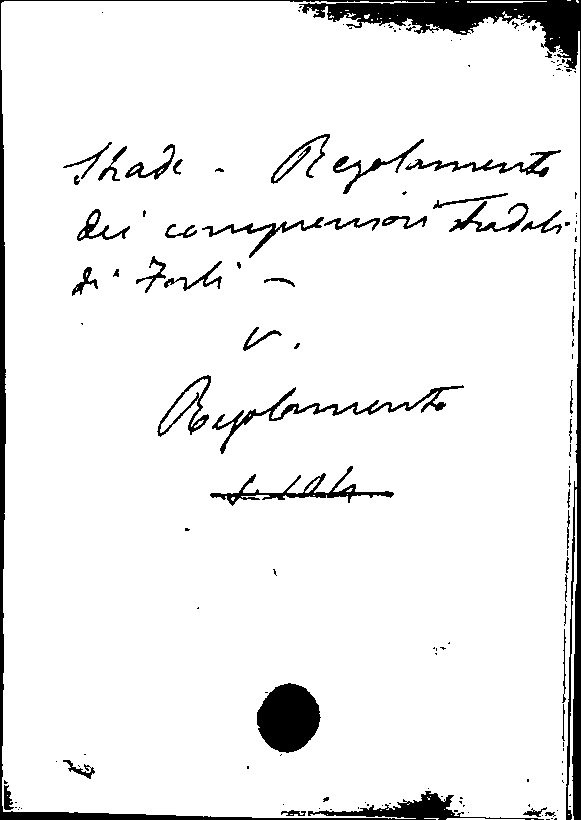 Strade - Regolamento
dei comprensori stradali
di Forlì -
V.
Regolamento